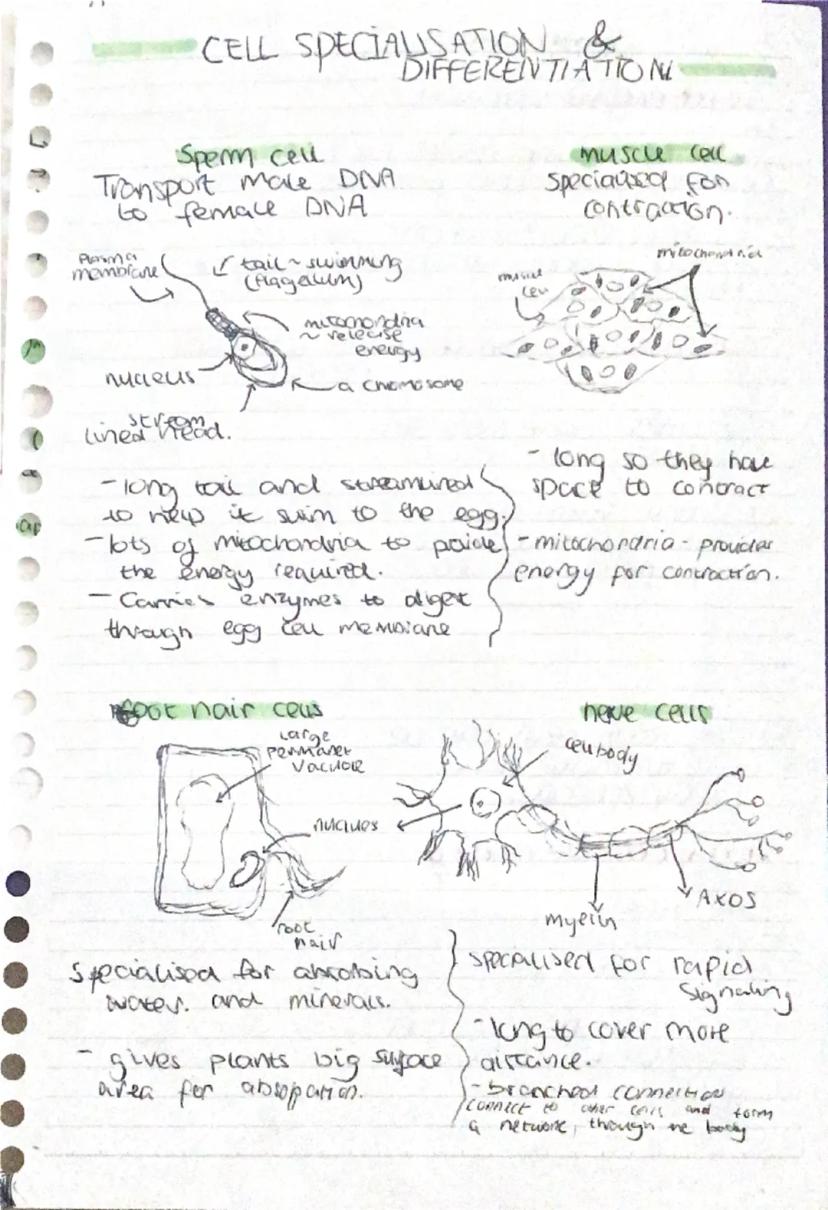 CELL SPECIALISATION &
DIFFERENTIATION
Sperm cell
Transport male DNA
to female DNA
Plasma
membrane
tail ~ swimming
(flagellum)
mitochondria
~ release
energy
nucleus
a chomosome
stream
lined head.
- long tail and streamlined
to help it swim to the egg.
- lots of mitochondria to
the energy required.
- Carries enzymes to digest
through egg cell membrane
muscle cell
specialised for
contraction.
mitochondria
muscle
cell
- long so they have
space to contract
- mitochondria - provides
energy for contraction.
root hair cells
Large
permanet
vacuole
nuclues
root
hair
specialised for absorbing
water. and minerals.
- gives plants big surface
area for absorption.
nerve cells
cell body
myelin
AXOS
specialised for rapid
signaling
- long to cover more
distance.
- branched connection
connect to other cells and form
a network, through the body